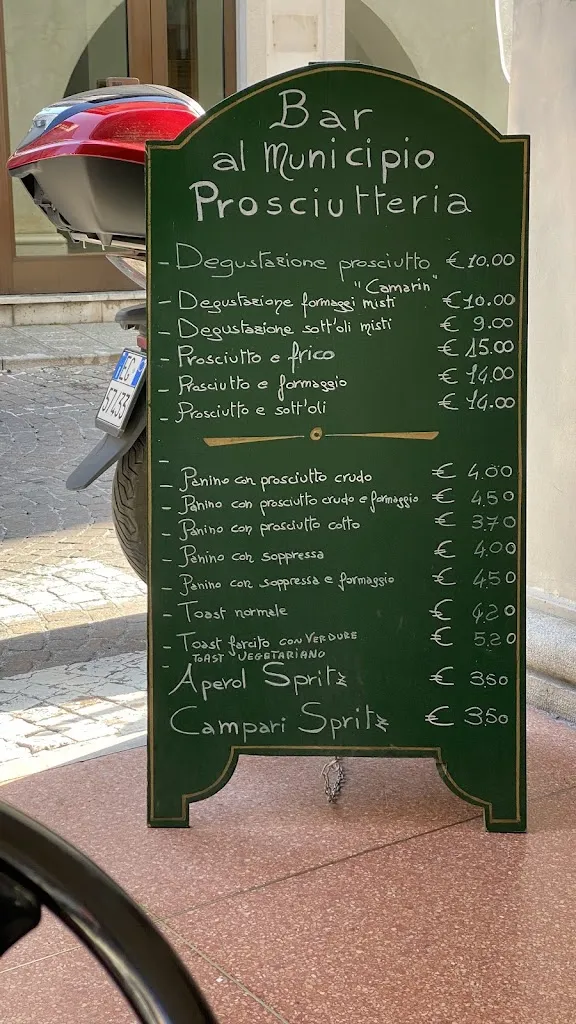 Bar
al Municipio
Prosciutteria
- Degustazione prosciutto € 10.00
"Camarin"
- Degustazione formaggi misti € 10.00
- Degustazione sott'oli misti € 9.00
- Prosciutto e frico € 15.00
- Prosciutto e formaggio € 14.00
- Prosciutto e sott'oli € 14.00
- Panino con prosciutto crudo € 4.00
- Panino con prosciutto crudo e formaggio € 4.50
- Panino con prosciutto cotto € 3.70
- Panino con soppressa € 4.00
- Panino con soppressa e formaggio € 4.50
- Toast normale € 4.20
- Toast farcito con VERDURE € 5.20
- TOAST VEGETARIANO
Aperol Spritz € 3.50
Campari Spritz € 3.50
EG
57433